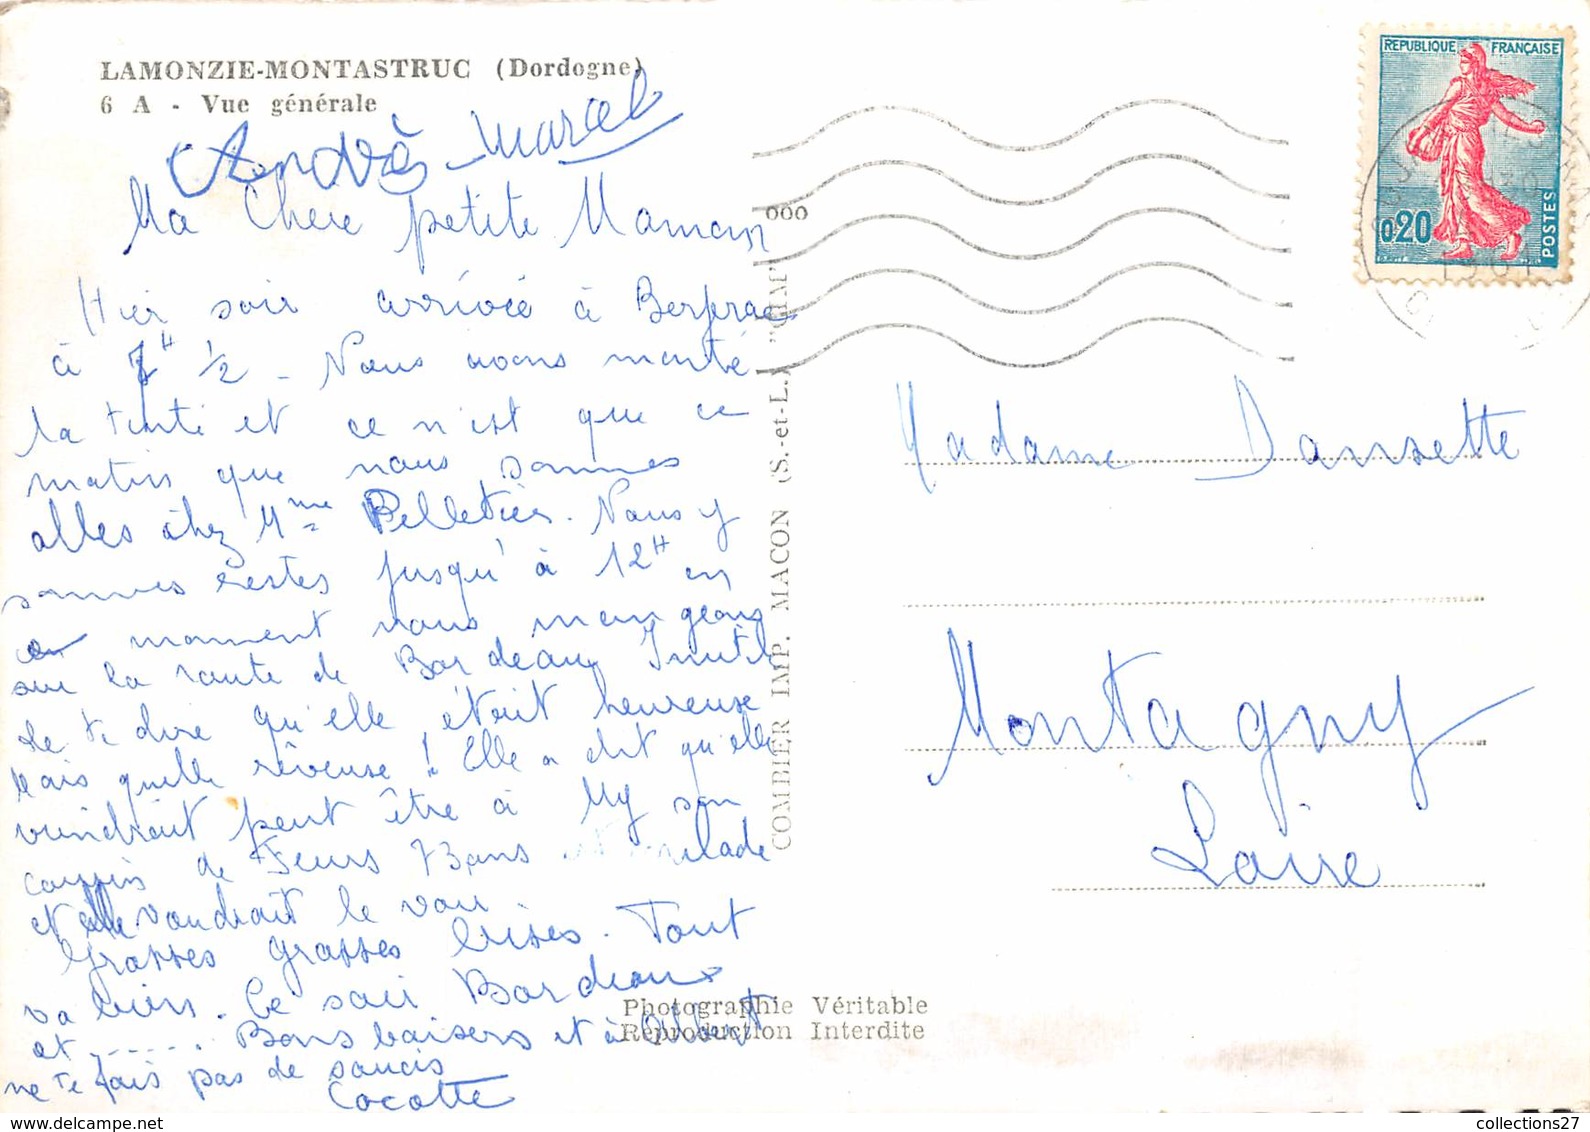 LAMONZIE-MONTASTRUC (Dordogne)
6 A - Vue générale
André Marcel
Ma Chere petite Maman
Hier soir arrivée à Bergerac
à 7H 1/2 - Nous avons monté
la tente et ce n'est que ce
matin que nous sommes
alles chez Mme Pelletier. Nous y
sommes restes jusqu'à 12H en
ce moment nous mangeons
sur la route de Bordeaux Inutile
de te dire qu'elle était heureuse
Mais quelle rêveuse ! Elle a dit qu'elle
viendrait peut être à son
cousin de Feurs 73 ans et malade
et elle voudrait le voir
Grosses grosses bises. Tout
va bien. Ce soir Bordeaux
et ...... Bons baisers et à Albert
ne te fais pas de soucis
Cocotte
000
COMBIER IMP. MACON (S.-et-L.) "CIM"
Photographie Véritable
Reproduction Interdite
REPUBLIQUE FRANÇAISE
0,20
POSTES
Madame Dansette
Montagny
Loire
collections27